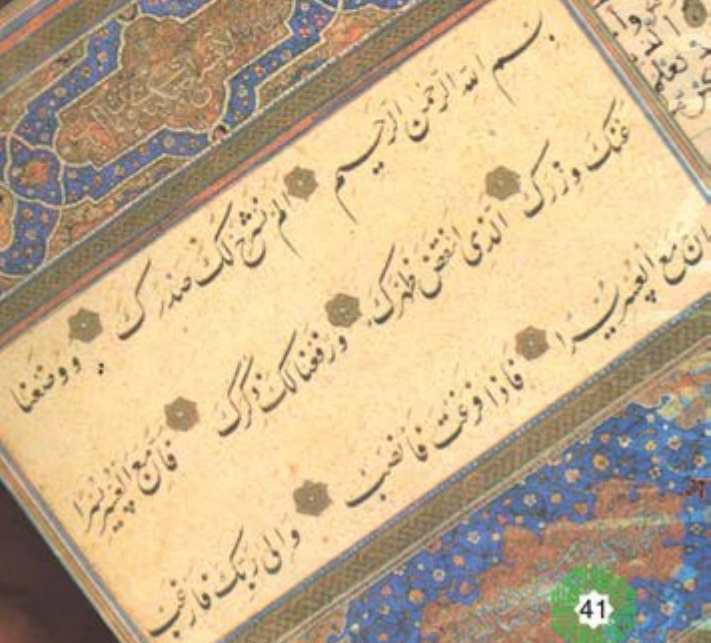 بسم الله الرحمن الرحيم الم نشرح لك صدرك ووضعنا
عنك وزرك الذى انقض ظهرك ورفعنا لك ذكرك فان مع العسر يسرا
ان مع العسر يسرا فاذا فرغت فانصب والى ربك فارغب
41